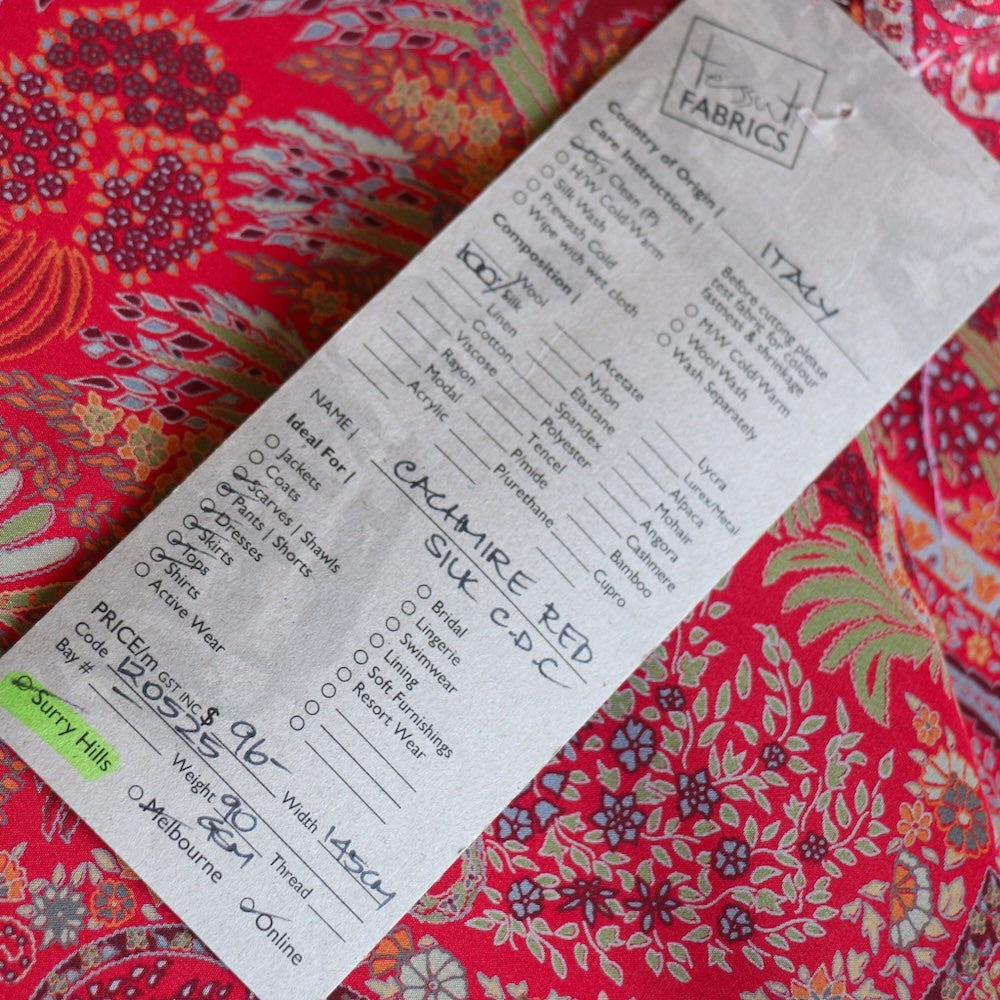 Tessuti
FABRICS
Country of Origin | ITALY
Care Instructions |
Dry Clean (P)
H/W Cold/Warm
Silk Wash
Prewash Cold
Wipe with wet cloth
Before cutting please
test fabric for colour
fastness & shrinkage
M/W Cold/Warm
Wool Wash
Wash Separately
Composition |
Wool
100% Silk
Linen
Cotton
Viscose
Rayon
Modal
Acrylic
Acetate
Nylon
Elastane
Spandex
Polyester
Tencel
P/mide
P/urethane
Lycra
Lurex/Metal
Alpaca
Mohair
Angora
Cashmere
Bamboo
Cupro
NAME | CACHMIRE RED
SILK C.D.C
Ideal For |
Jackets
Coats
Scarves | Shawls
Pants | Shorts
Dresses
Skirts
Tops
Shirts
Active Wear
Bridal
Lingerie
Swimwear
Lining
Soft Furnishings
Resort Wear
PRICE/m GST INC $ 96-
Code 120525 Width 145cm
Bay # Weight 90 GSM Thread
Surry Hills Melbourne Online